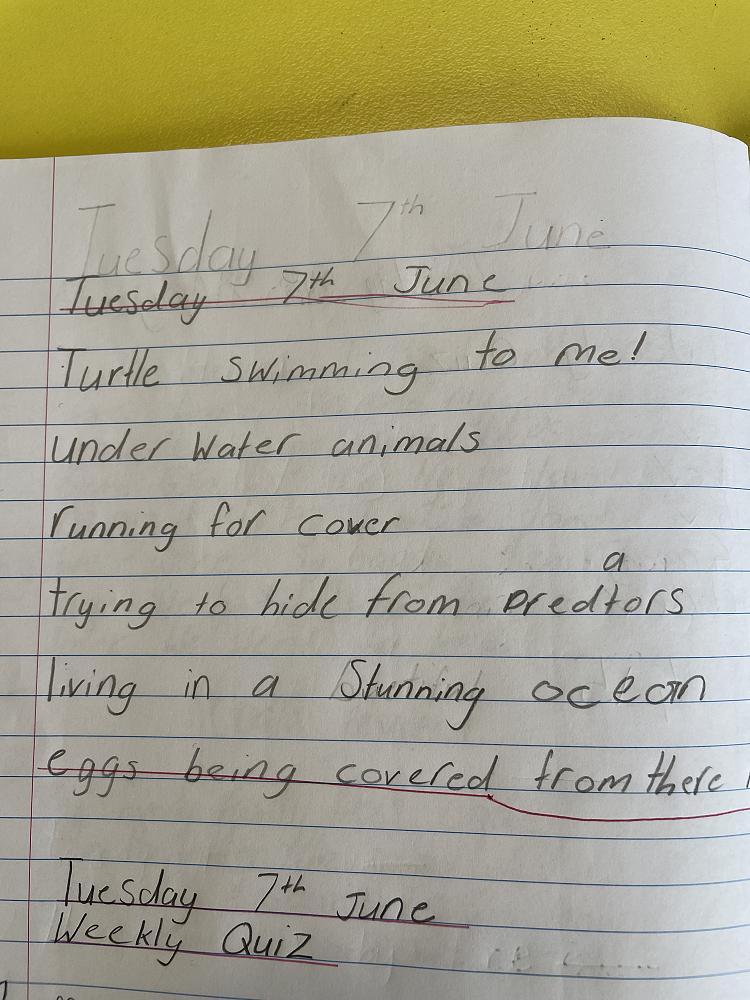 Tuesday 7th June
Tuesday 7th June
Turtle swimming to me!
under water animals
running for cover
trying to hide from predators
living in a stunning ocean
eggs being covered from there
Tuesday 7th June
Weekly Quiz